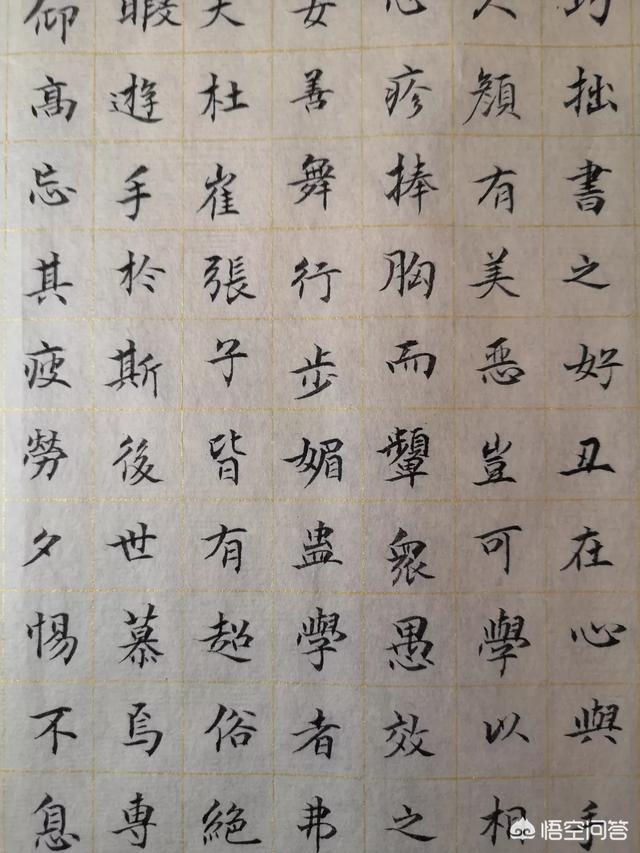 巧拙書之好丑在心與手
人顏有美惡豈可學以相
心疹捧胸而顰衆愚效之
女善舞行步媚蠱學者弗
夫杜崔張子皆有超俗絕
暇遊手於斯後世慕焉專
仰高忘其疲勞夕惕不息
悟空问答